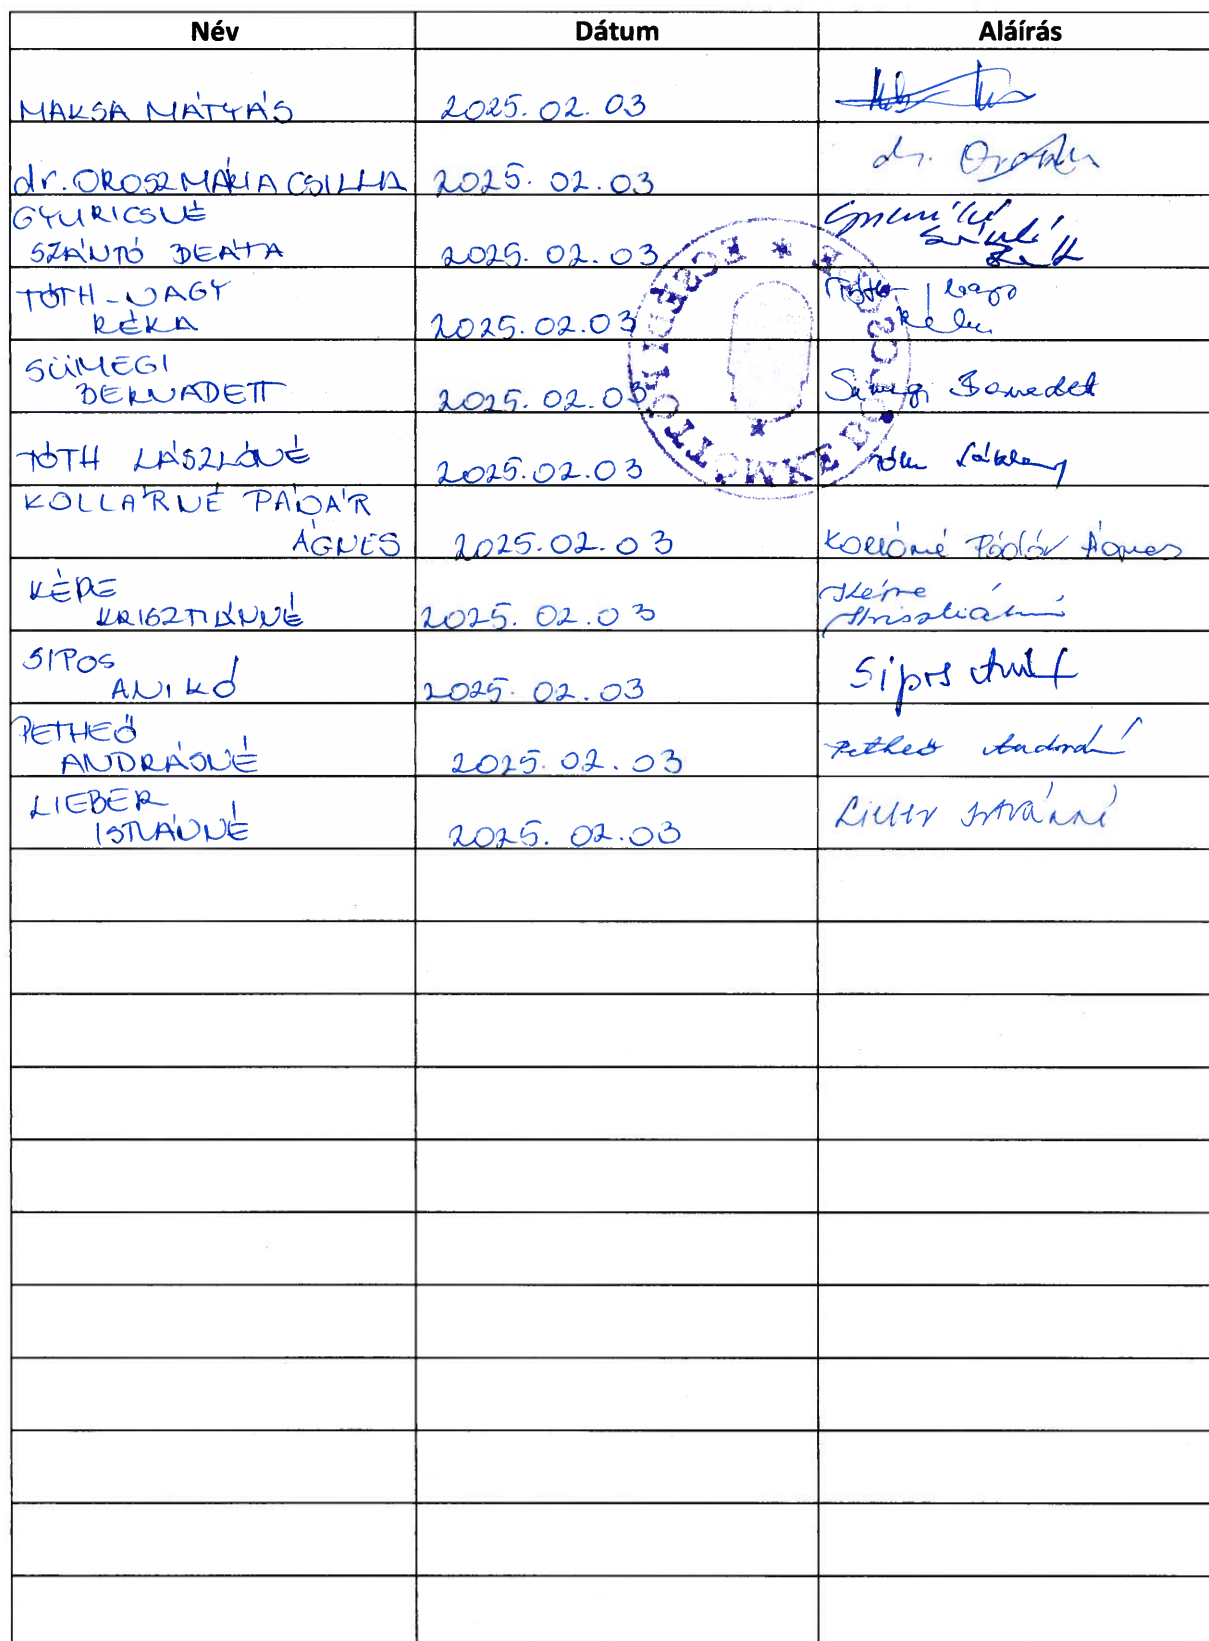 Név Dátum Aláírás
MAKSA MÁTYÁS 2025.02.03
dr. OROSZ MÁRIA CSILLA 2025.02.03 dr.
GYURICSNÉ
SZÁNTÓ BEÁTA 2025.02.03
TÓTH-NAGY
RÉKA 2025.02.03
SÜMEGI
BERNADETT 2025.02.03
TÓTH LÁSZLÓNÉ 2025.02.03
KOLLÁRNÉ PÁDÁR
ÁGNES 2025.02.03 Kollárné Pádár Ágnes
KÉPE
KRISZTIÁNNÉ 2025.02.03
SIPOS
ANIKÓ 2025.02.03 Sipos Anikó
PETHEŐ
ANDRÁSNÉ 2025.02.03 Petheő Andrásné
LIEBER
ISTVÁNNÉ 2025.02.03 Lieber Istvánné